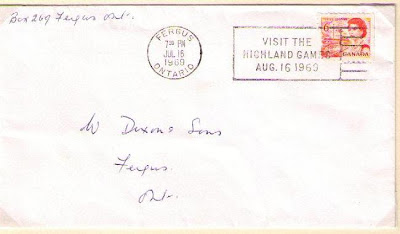 Box 269 Fergus Ont.
FERGUS
7 PM
JUL 16
1969
ONTARIO
VISIT THE
HIGHLAND GAMES
AUG. 16 1969
6
CANADA
W Dixon & Sons
Fergus
Ont.